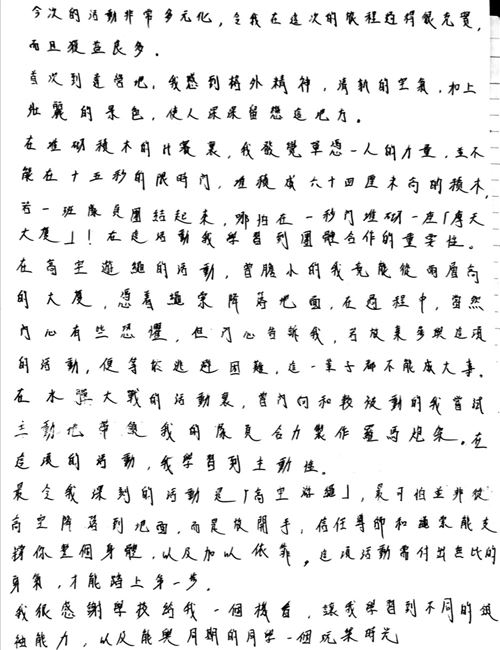 今次的活動非常多元化，令我在這次的旅程過得很充實，
而且獲益良多。
首次到達營地，我感到格外精神，清新的空氣，加上
壯麗的景色，使人深深留戀這地方。
在堆砌積木的比賽裏，我發覺單憑一人的力量，並不
能在十五秒的限時內，堆積成六十四厘米高的積木，
若一班隊員團結起來，哪怕在一秒內堆砌一座「摩天
大廈」！在這活動我學習到團體合作的重要性。
在高空遊繩的活動，當膽小的我竟能從兩層高
的大廈，憑着繩索降落地面，在過程中，當然
內心有些恐懼，但內心告訴我，若放棄參與這項
的活動，便等於逃避困難，這一輩子都不能成大事。
在水彈大戰的活動裏，當內向和較被動的我嘗試
主動地帶領我的隊員合力製作羅馬炮架。在
這項的活動，我學習到主動性。
最令我深刻的活動是「高空遊繩」，最可怕並非從
高空降落到地面，而是放開手，信任導師和繩索能支
撐你整個身體，以及加以依靠。這項活動需付出無比的
勇氣，才能踏上第一步。
我很感謝學校給我一個機會，讓我學習到不同的
能力，以及能與同期的同學一個玩樂時光